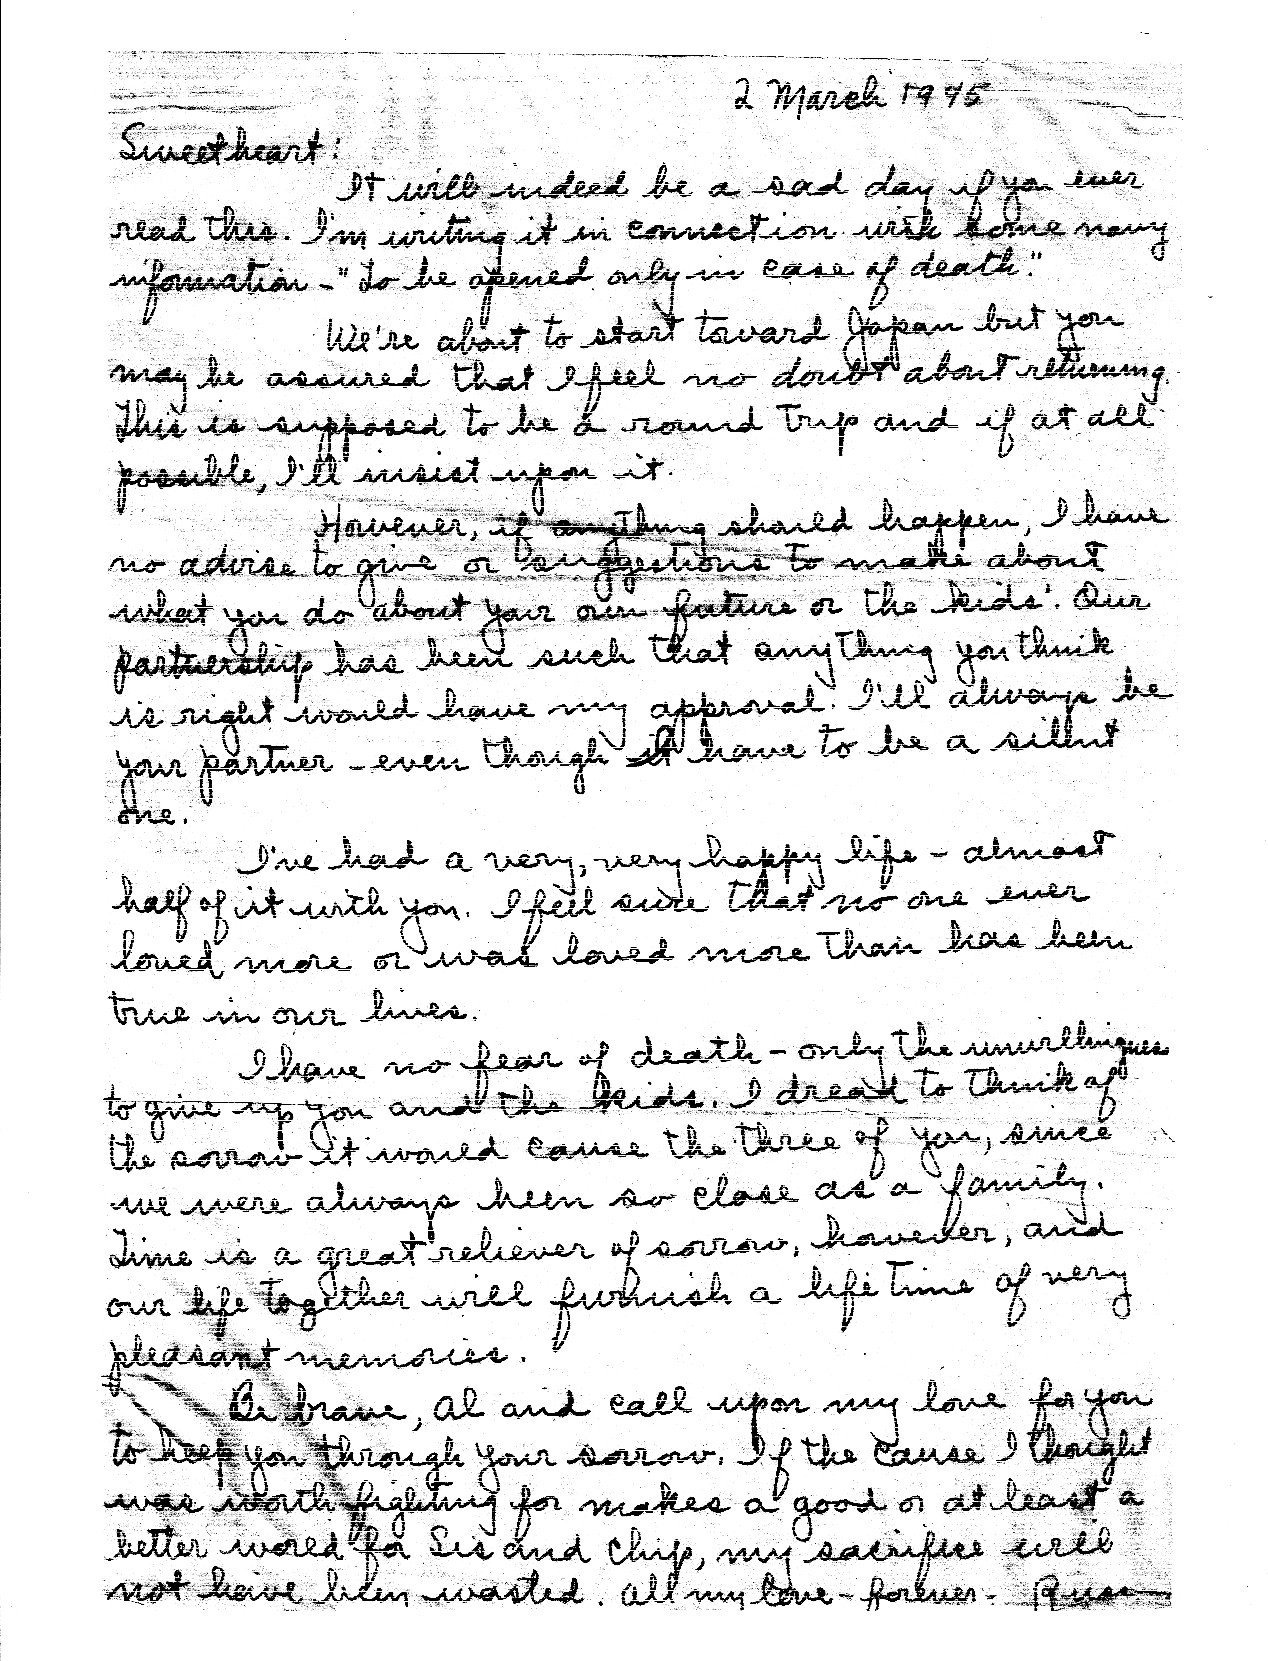 2 March 1945
Sweetheart:
It will indeed be a sad day if you ever
read this. I'm writing it in connection with some navy
information - "To be opened only in case of death."
We're about to start toward Japan but you
may be assured that I feel no doubt about returning.
This is supposed to be a round trip and if at all
possible, I'll insist upon it.
However, if anything should happen, I have
no advise to give or suggestions to make about
what you do about your own future or the kids'. Our
partnership has been such that anything you think
is right would have my approval. I'll always be
your partner - even though I have to be a silent
one.
I've had a very, very happy life - almost
half of it with you. I feel sure that no one ever
loved more or was loved more than has been
true in our lives.
I have no fear of death - only the unwillingness
to give up you and the kids. I dread to think of
the sorrow it would cause the three of you, since
we were always been so close as a family.
Time is a great reliever of sorrow, however, and
our life together will furnish a life time of very
pleasant memories.
Be brave, Al and call upon my love for you
to keep you through your sorrow. If the cause I thought
was worth fighting for makes a good or at least a
better world for Sis and Chip, my sacrifice will
not have been wasted. All my love - forever - Russ